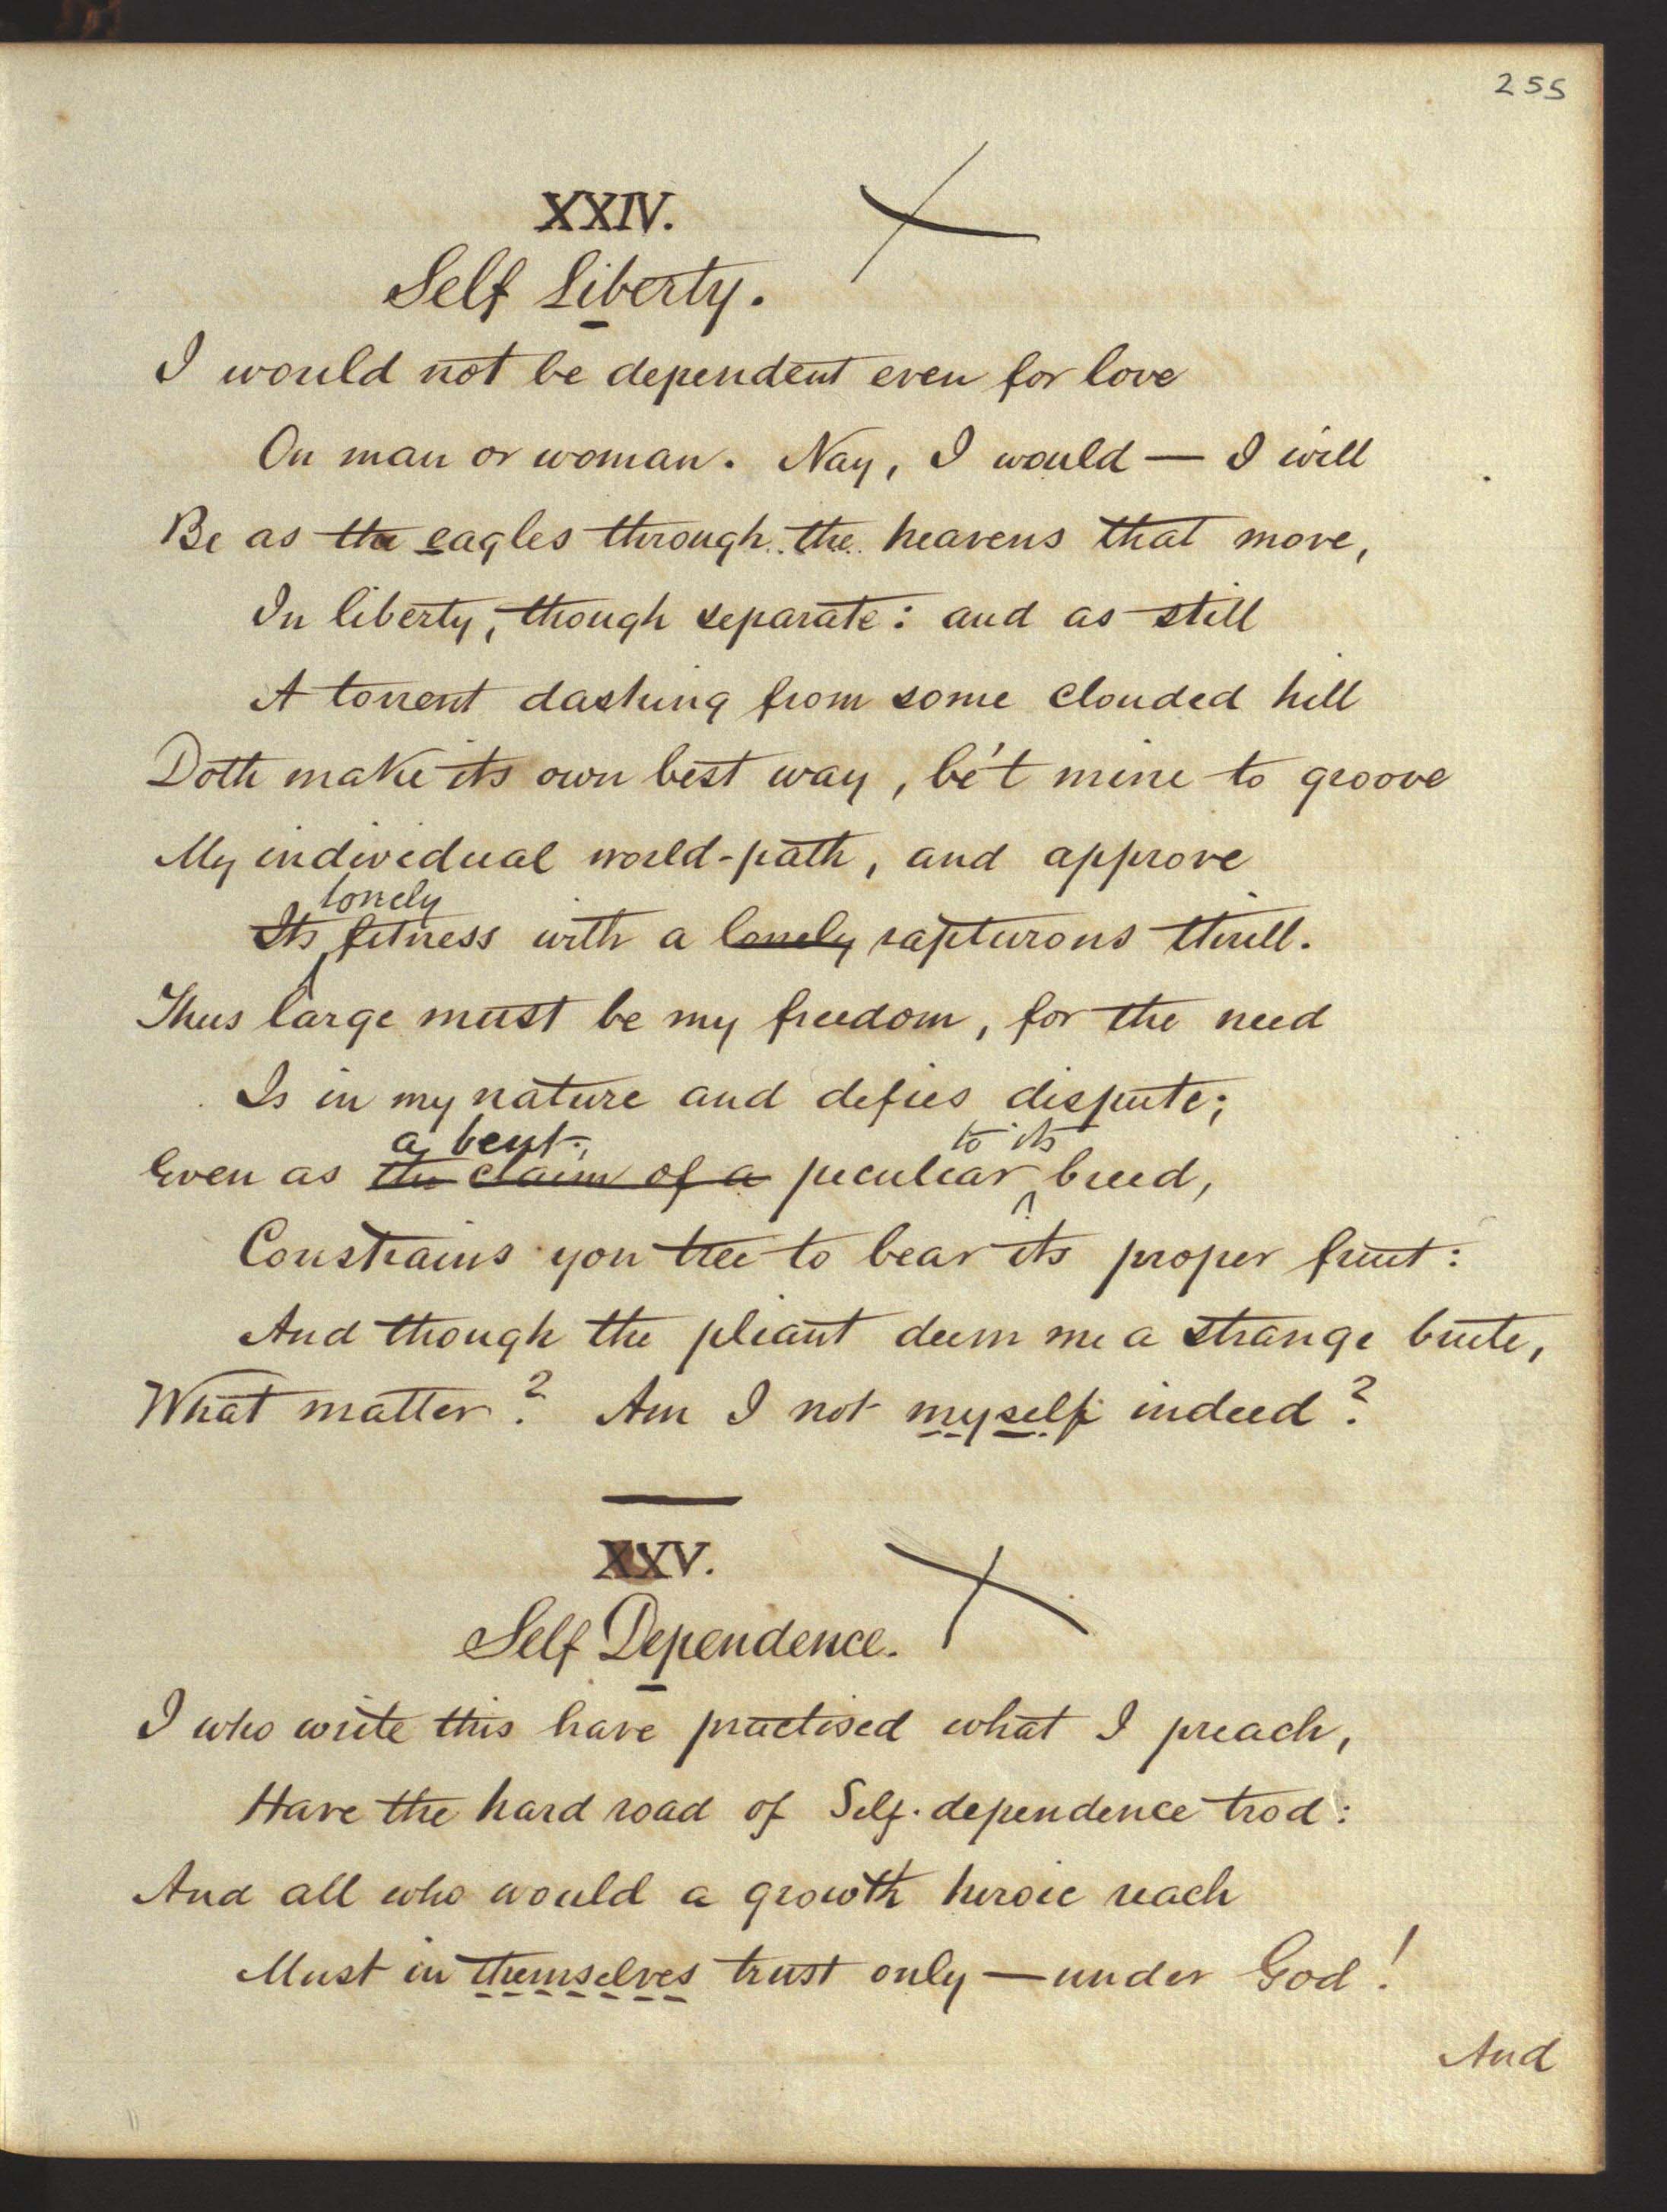 255
XXIV.
Self Liberty.
I would not be dependent even for love
On man or woman. Nay, I would — I will
Be as the eagles through the heavens that move,
In liberty, though separate: and as still
A torrent dashing from some clouded hill
Doth make its own best way, be't mine to groove
My individual world-path, and approve
lonely
Its fitness with a lonely rapturous thrill.
Thus large must be my freedom, for the need
Is in my nature and defies dispute;
a bent to its
Even as the claim of a peculiar breed,
Constrains yon tree to bear its proper fruit:
And though the pliant deem me a strange brute,
What matter? Am I not myself indeed?
XXV.
Self Dependence.
I who write this have practised what I preach,
Have the hard road of Self-dependence trod:
And all who would a growth heroic reach
Must in themselves trust only — under God!
And